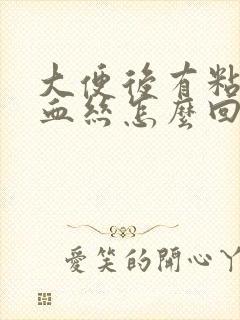 大便後有粘
血絲怎麼回
愛笑的開心丫